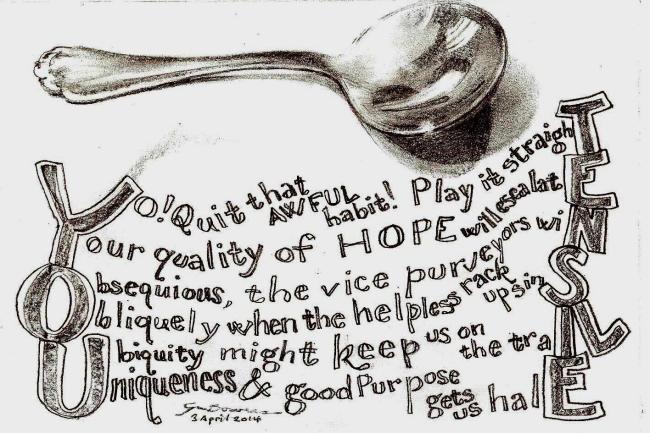 Yo! Quit that AWFUL habit! Play it straighT
Your quality of HOPE will escalatE
Obsequious, the vice purveyors wiN
Obliquely when the helpless rack up sinS
Ubiquity might keep us on the traIL
Uniqueness & good Purpose gets us halE
3 April 2014